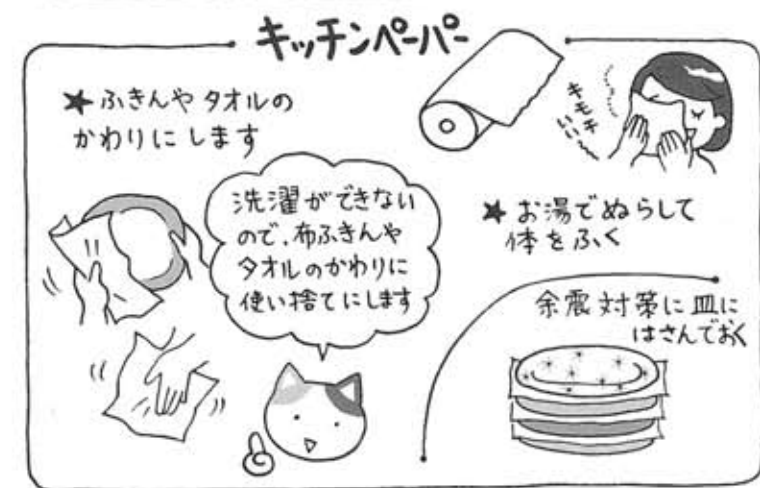 キッチンペーパー
★ふきんや タオルの
かわりに します
キモチ
いい〜
洗濯ができない
ので、布ふきんや
タオルのかわりに
使い捨てにします
★お湯でぬらして
体をふく
余震対策に皿に
はさんでおく